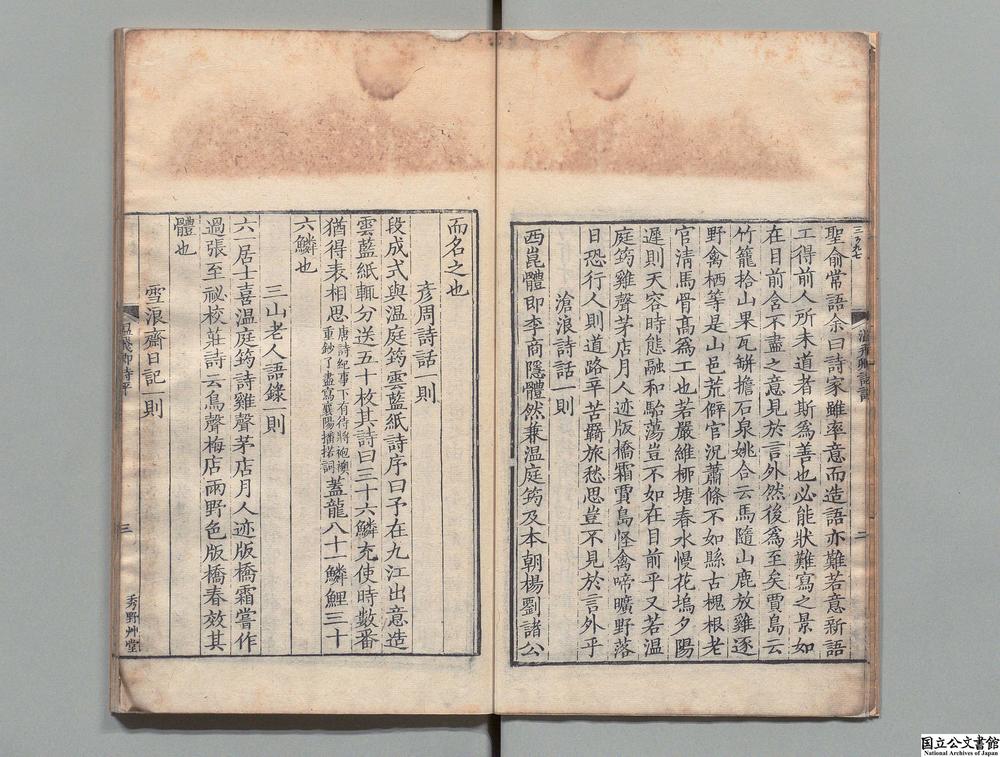 聖俞常語余曰詩家雖率意而造語亦難若意新語
工得前人所未道者斯爲善也必能狀難寫之景如
在目前含不盡之意見於言外然後爲至矣賈島云
竹籠拾山果瓦缾擔石泉姚合云馬隨山鹿放雞逐
野禽栖等是山邑荒僻官況蕭條不如縣古槐根老
官清馬骨髙爲工也若嚴維栁塘春水慢花塢夕陽
遲則天容時態融和駘蕩豈不如在目前乎又若温
庭筠雞聲茅店月人迹版橋霜賈島怪禽啼曠野落
日恐行人則道路辛苦羇旅愁思豈不見於言外乎
滄浪詩話一則
西崑體即李商隱體然兼温庭筠及本朝楊劉諸公
而名之也
彦周詩話一則
段成式與温庭筠雲藍紙詩序曰予在九江出意造
雲藍紙輒分送五十枚其詩曰三十六鱗充使時數番
猶得表相思唐詩紀事下有待將袍襖重鈔了盡寫襄陽播搭詞蓋龍八十一鱗鯉三十
六鱗也
三山老人語錄一則
六一居士喜温庭筠詩雞聲茅店月人迹版橋霜嘗作
過張至祕校莊詩云鳥聲梅店雨野色版橋春效其
體也
雪浪齋日記一則
三
秀野艸堂
国立公文書館
National Archives of Japan